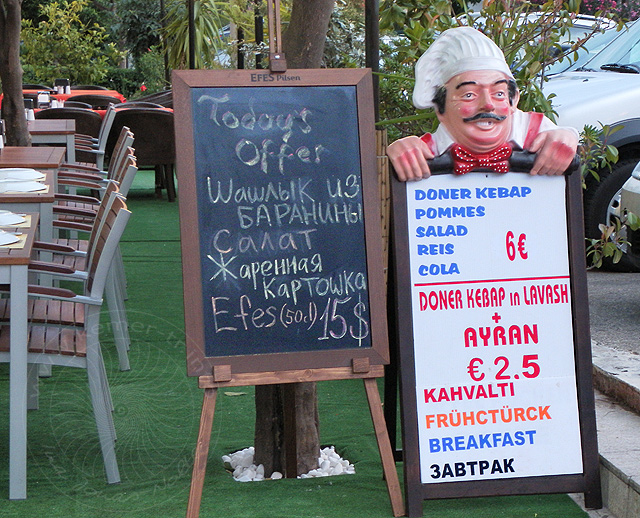 EFES Pilsen
Today's
Offer
Шашлык из
БАРАНИНЫ
Салат
Жаренная
Картошка
Efes (50cl) 15$
DONER KEBAP
POMMES
SALAD
REIS
COLA
6€
DONER KEBAP in LAVASH
+
AYRAN
€ 2.5
KAHVALTI
FRÜHCTÜRCK
BREAKFAST
ЗАВТРАК